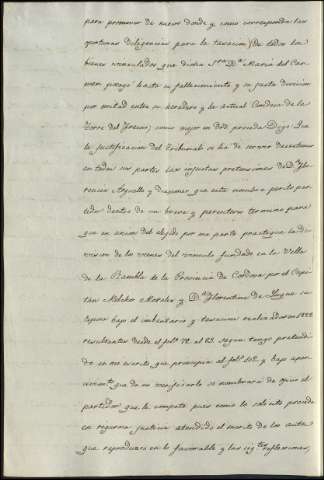 para promover de nuevo donde y como corresponda las
oportunas diligencias para la tasacion de todos los
bienes vinculados que dicha Sra. Da. Maria del Car-
men poseyó hasta su fallecimiento y su justa division
por mitad entre su heredero y la actual Condesa de la
Torre del Fresno; como mejor en dro. proceda Digo: Que
la justificacion del Tribunal se ha de servir desestimar
en todas sus partes las injustas pretensiones de D. Flo-
rencio Arguello y disponer que este nombre perito par-
tidor dentro de un breve y perentorio termino para
que en union del elejido por mi parte practique la di-
vision de los vienes del vinculo fundado en la Villa
de la Rambla de la Provincia de Cordova por el Capi-
tan Melchor Morales y Da. Florentina de Luque su
esposa bajo el imbentario y tasacion realizados en 1822
resultantes desde el folo. 72 al 83 segun tengo pretendi-
do en mi escrito que principia al folo. 102 y bajo aper-
civimto. que de no verificarlo se nombrará de oficio el
partidor que le competa pues como lo solicito procede
en rigorosa justicia atendido el merito de los autos
que reproduzco en lo favorable y las sigtes. reflexiones;